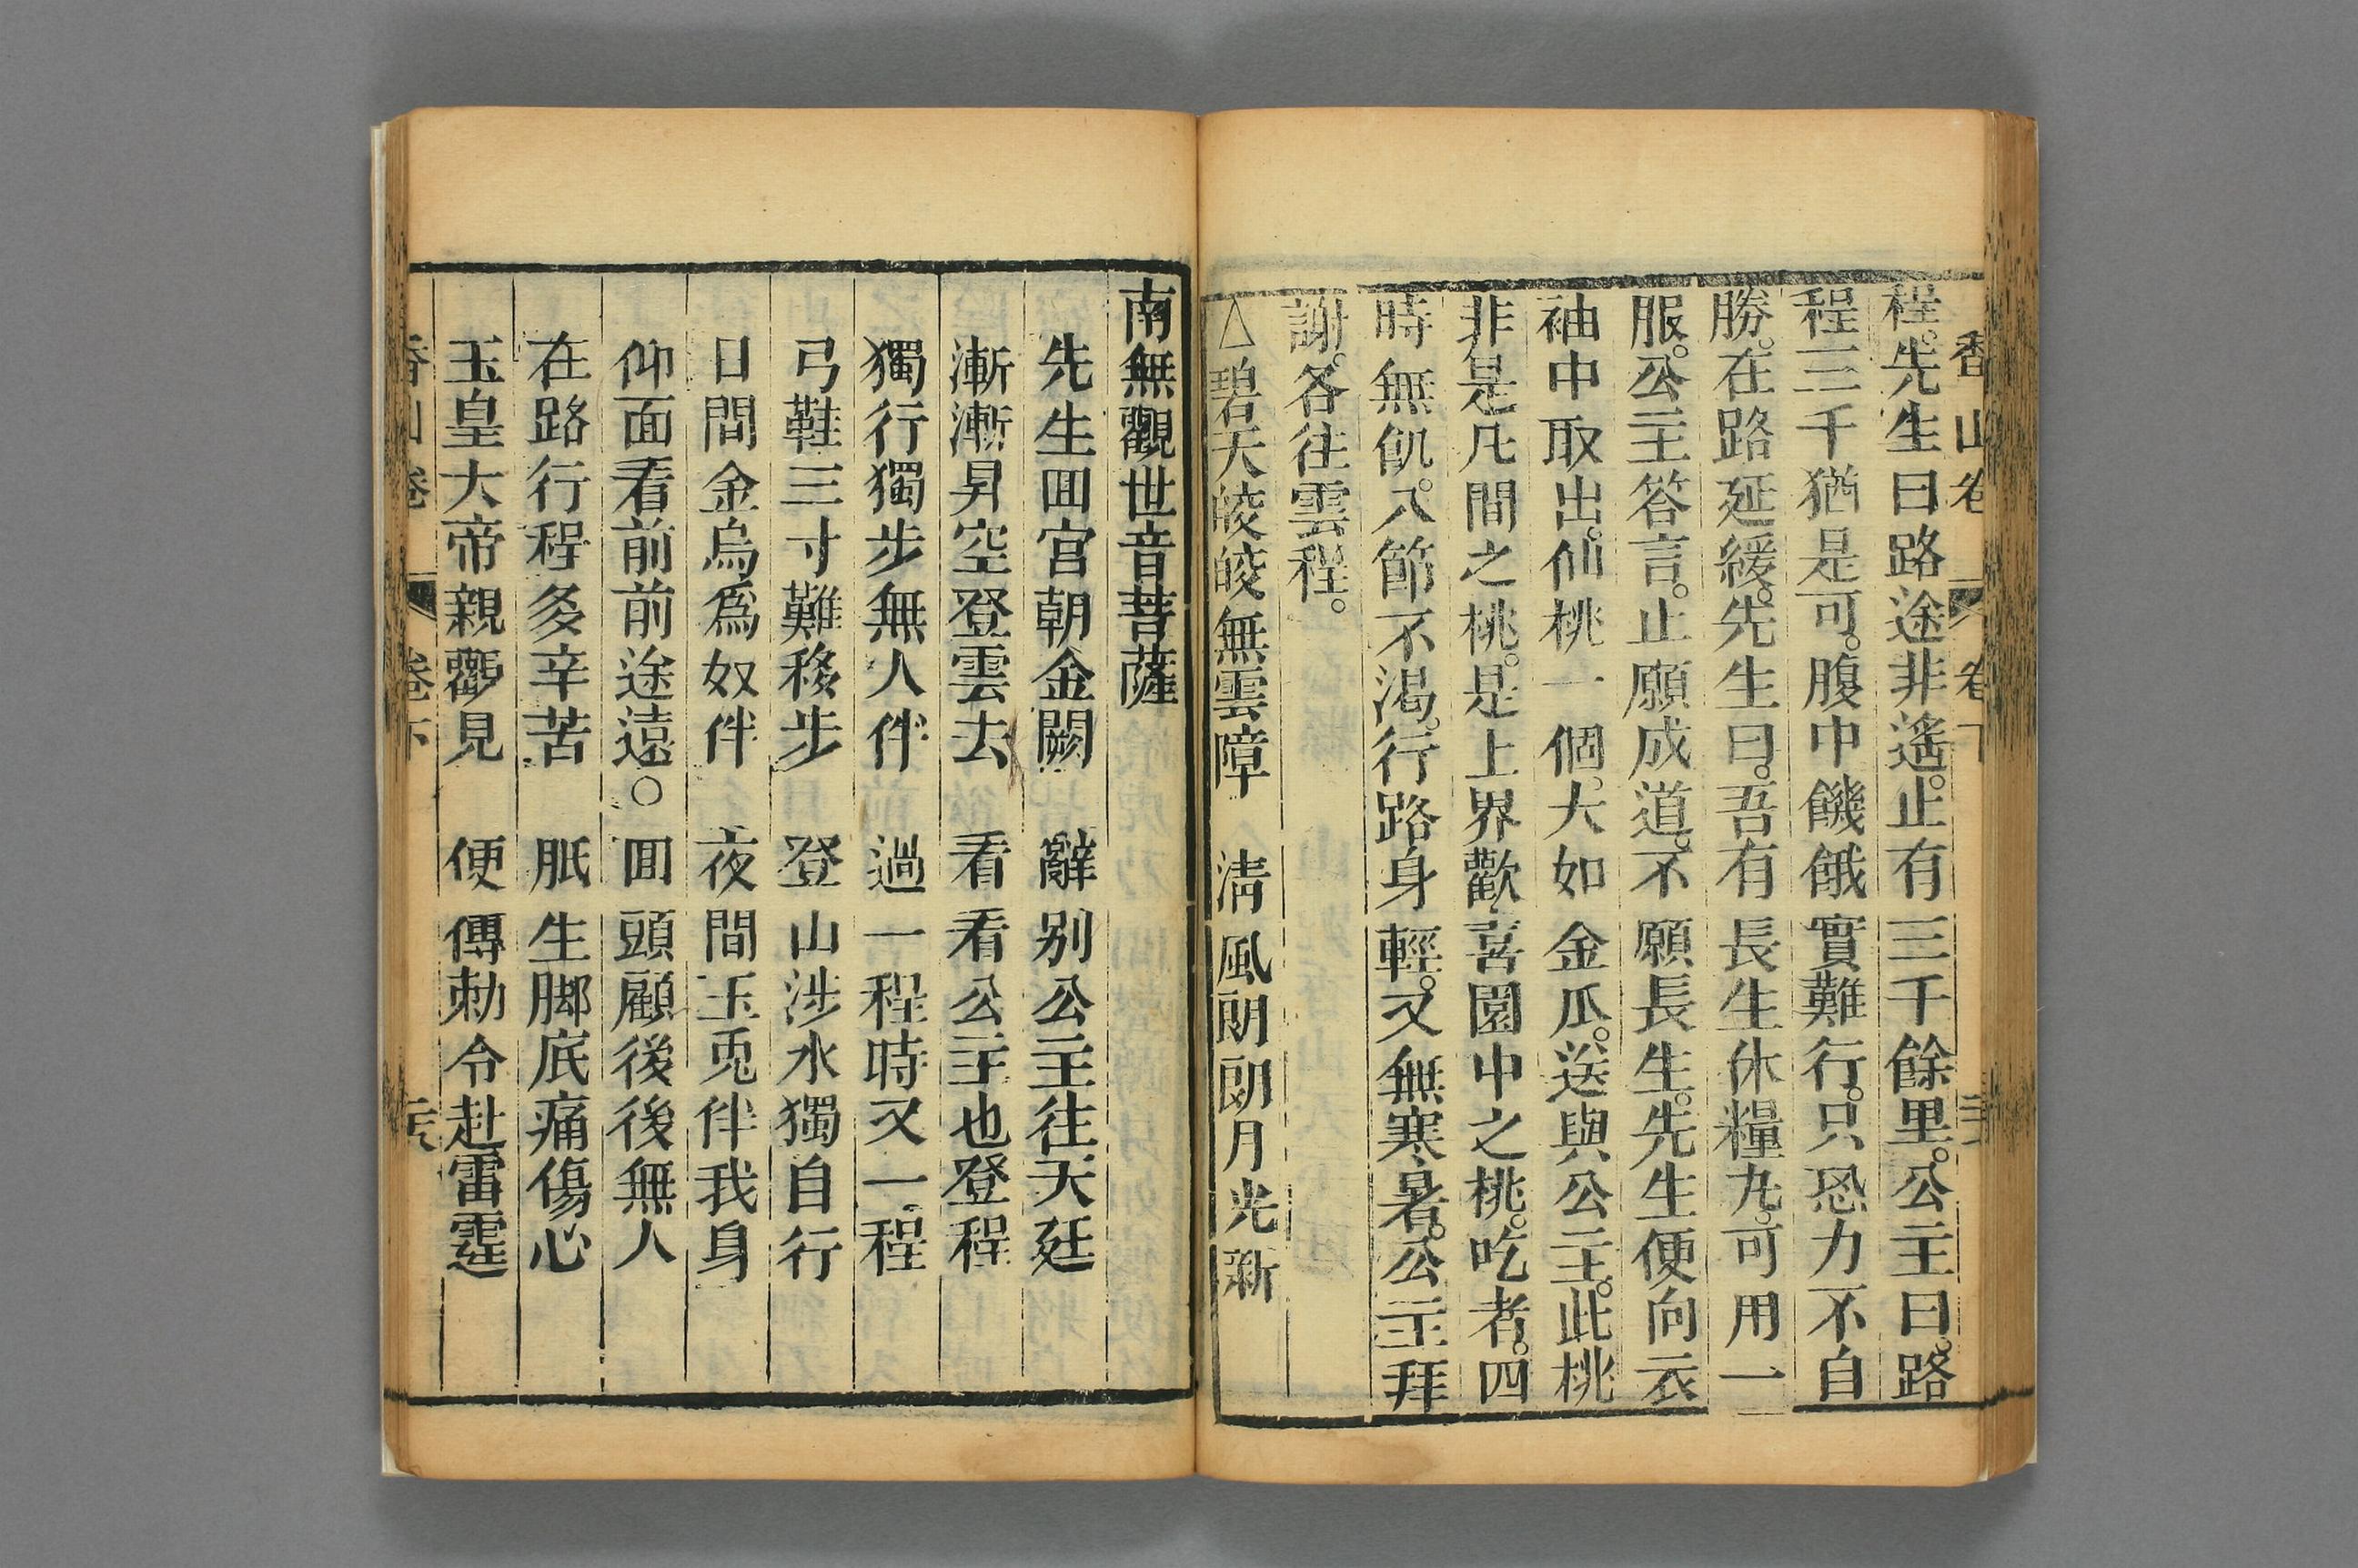 香山卷 卷下
程。先生曰路途非遙。止有三千餘里。公主曰。路
程三千猶是可。腹中饑餓實難行。只恐力不自
勝。在路延緩。先生曰。吾有長生休糧丸。可用一
服。公主答言。止願成道。不願長生。先生便向衣
袖中取出。仙桃一個。大如金瓜。送與公主。此桃
非是凡間之桃。是上界歡喜園中之桃。吃者。四
時無飢。八節不渴。行路身輕。又無寒暑。公主拜
謝。各往雲程。
△碧天皎皎無雲障 淸風朗朗月光新
南無觀世音菩薩
先生囬宮朝金闕 辭别公主往天廷
漸漸昇空登雲去 看看公主也登程
獨行獨步無人伴 過一程時又一程
弓鞋三寸難移步 登山涉水獨自行
日間金烏爲奴伴 夜間玉兎伴我身
仰面看前前途遠。 囬頭顧後後無人
在路行程多辛苦 胝生脚底痛傷心
玉皇大帝親觀見 便傳勅令赴雷霆
香山卷 卷下